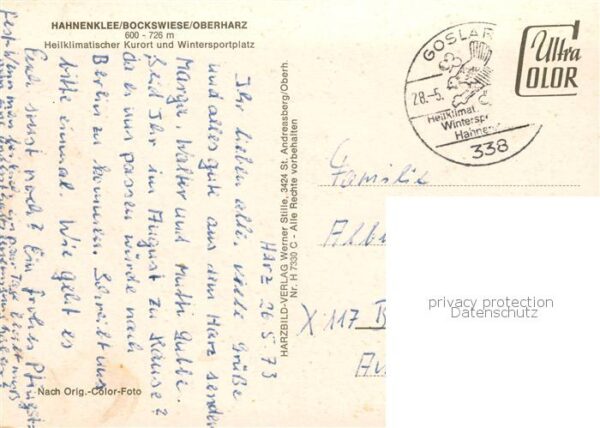 HAHNENKLEE/BOCKSWIESE/OBERHARZ
600 - 726 m
Heilklimatischer Kurort und Wintersportplatz
Harz 26 5 73
Ihr lieben alle, viele Grüße
und alles gute aus dem Harz senden
Marga, Walter und Mutti
Seid Ihr im August zu Hause?
da es uns passen würde nach
Berlin zu kommen. Schreibt uns
bitte einmal. Wie geht es
Euch sonst noch? Ein frohes Pfingst-
fest
Nach Orig.-Color-Foto
HARZBILD-VERLAG Werner Stille, 3424 St. Andreasberg/Oberh.
Nr. H 7330 C - Alle Rechte vorbehalten
GOSLAR
28.-5.
Heilklimat
Wintersp
Hahnen
338
Ultra
COLOR
Familie
X 117 B
privacy protection
Datenschutz